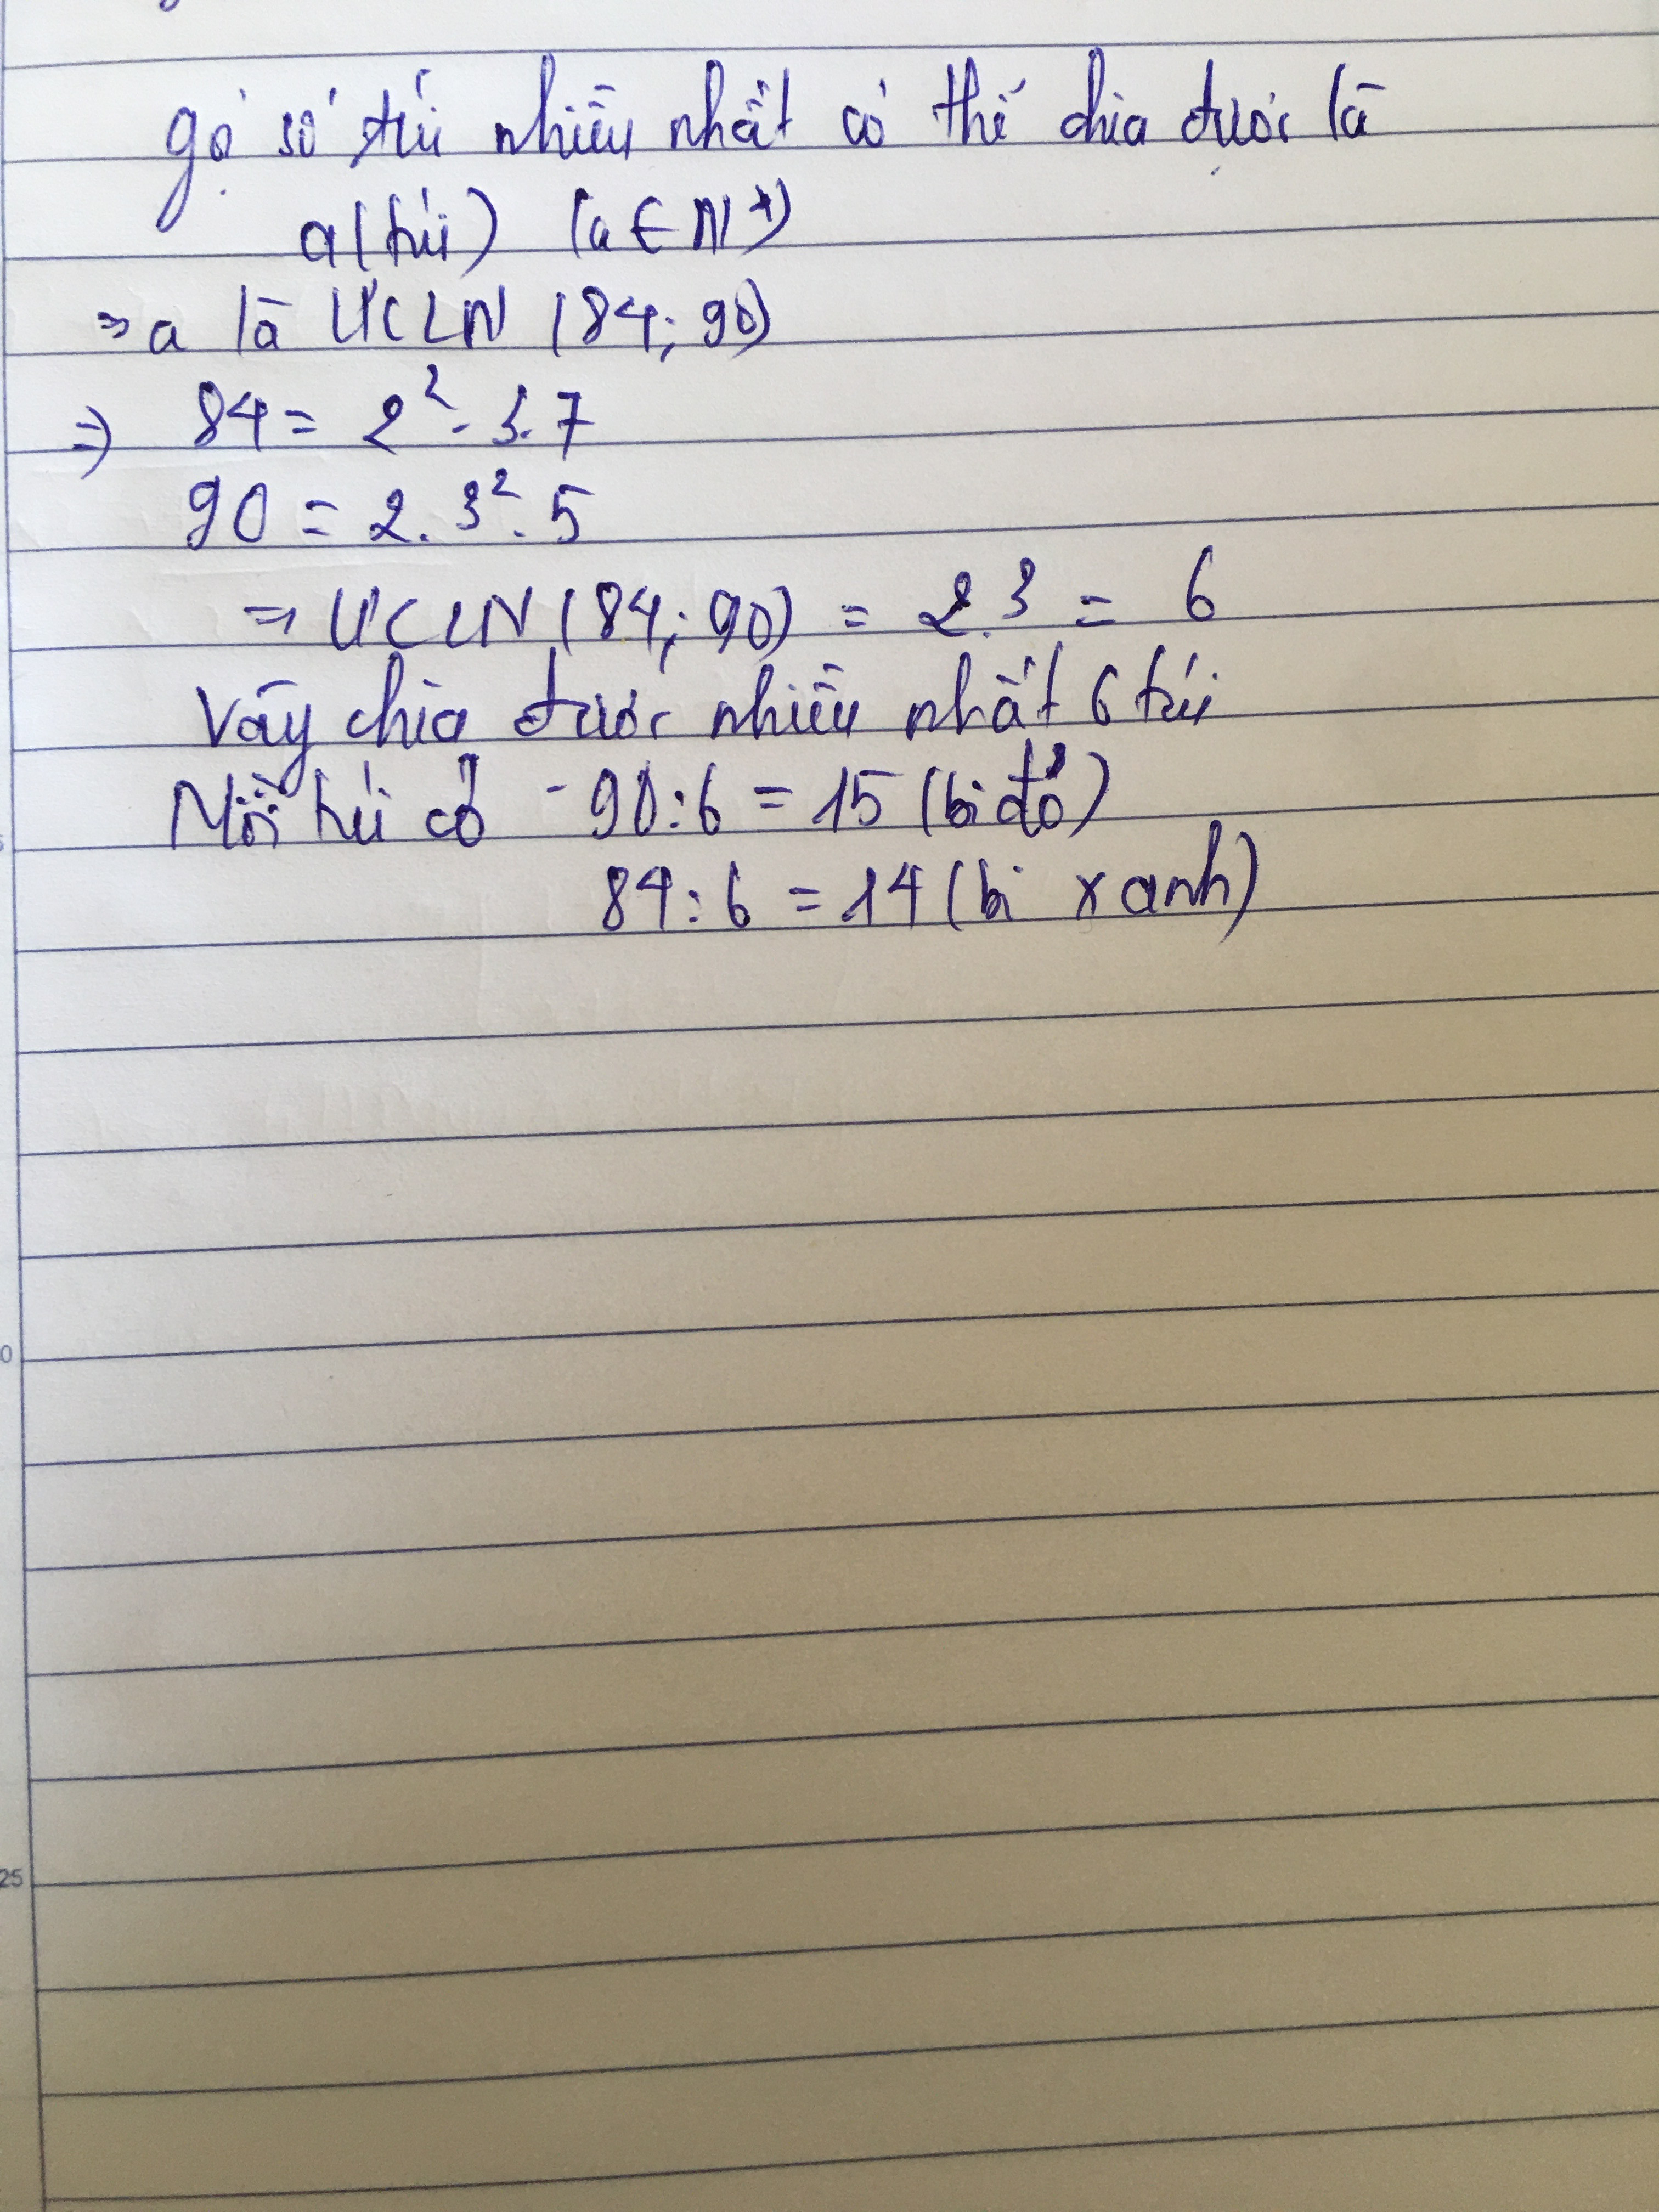 gọi số túi nhiều nhất có thể chia được là
a(túi) (a ∈ N*)
=> a là ƯCLN (84; 90)
=> 84 = 2² . 3 . 7
90 = 2 . 3² . 5
=> ƯCLN (84; 90) = 2.3 = 6
Vậy chia được nhiều nhất 6 túi
Mỗi túi có - 90 : 6 = 15 (bi đỏ)
84 : 6 = 14 (bi xanh)
0
25